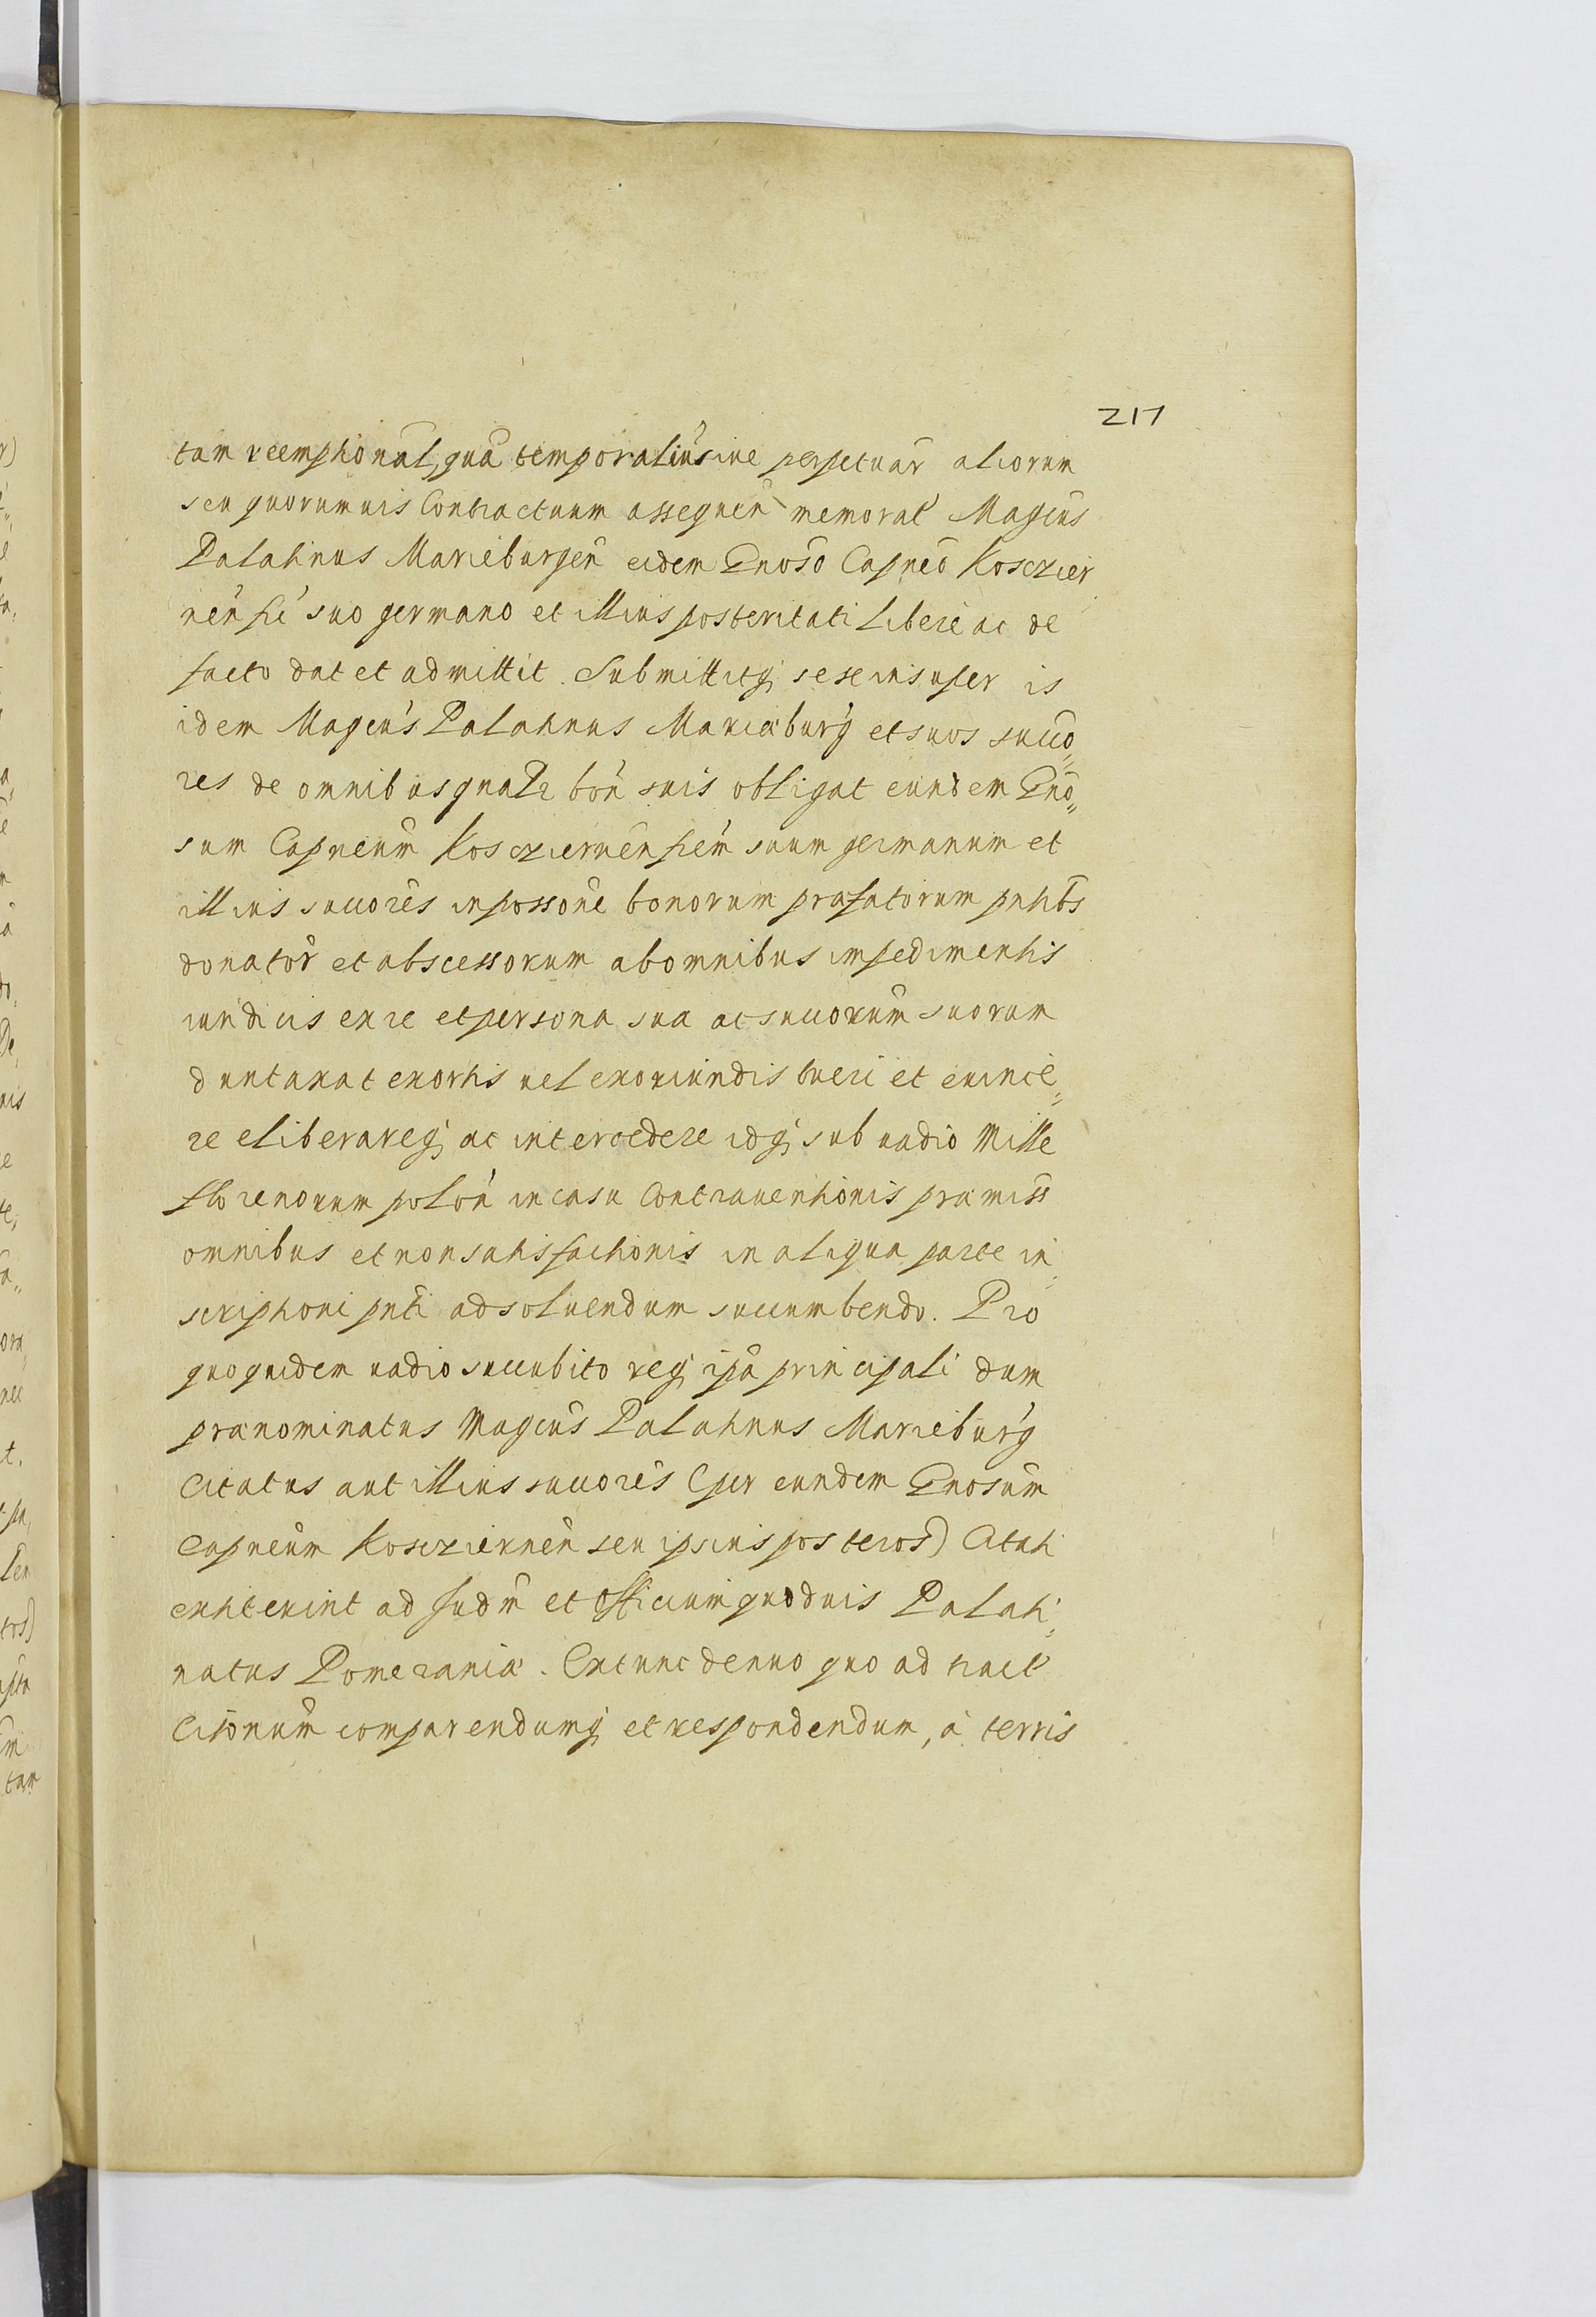 217
tam reemptional, qua temporaliu siue perpetuar aliorum
seu quorumuis Contractuum assequen memorat Magcus
Palatinus Marieburgen eidem Gnoso Capneo Kosczier
nensi suo germano et illius posteritati libere ac de
facto dat et admittit. Submittitq sese insuper is
idem Magcus Palatinus Mariæburg et suos succo„
res de omnibus gnalr bon suis obligat eundem Gno„
sum Capneum Koscziernensem suum germanum et
illius succores in possone bonorum præfatorum pntibs
donator et abscessorum ab omnibus impedimentis
iuridicis ex re et persona sua ac succorum suorum
duntaxat exortis uel exoriundis tueri et euince„
re eliberareq ac intercedere idq sub uadio Mille
florenorum polon in casu Contrauentionis præmiss
omnibus et non satisfactionis in aliqua parte in„
scriptioni pnti ad soluendum succumbendo. Pro
quoquidem uadio succubito req ipa principali dum
prænominatus Magcus Palatinus Marieburg
Citatus aut illius succores (per eundem Gnosum
Capneum Kosciernen seu ipsius posteros) Citati
extiterint ad Judm et Officium quoduis Palati„
natus Pomeraniæ. Extunc denuo quo ad hac
Citonum comparendumq et respondendum, à terris